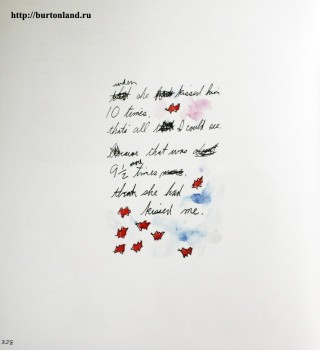 http://burtonland.ru
when
she kissed him
10 times.
thats all I could see.
because that was
9 ½ times
than she had
kissed me.